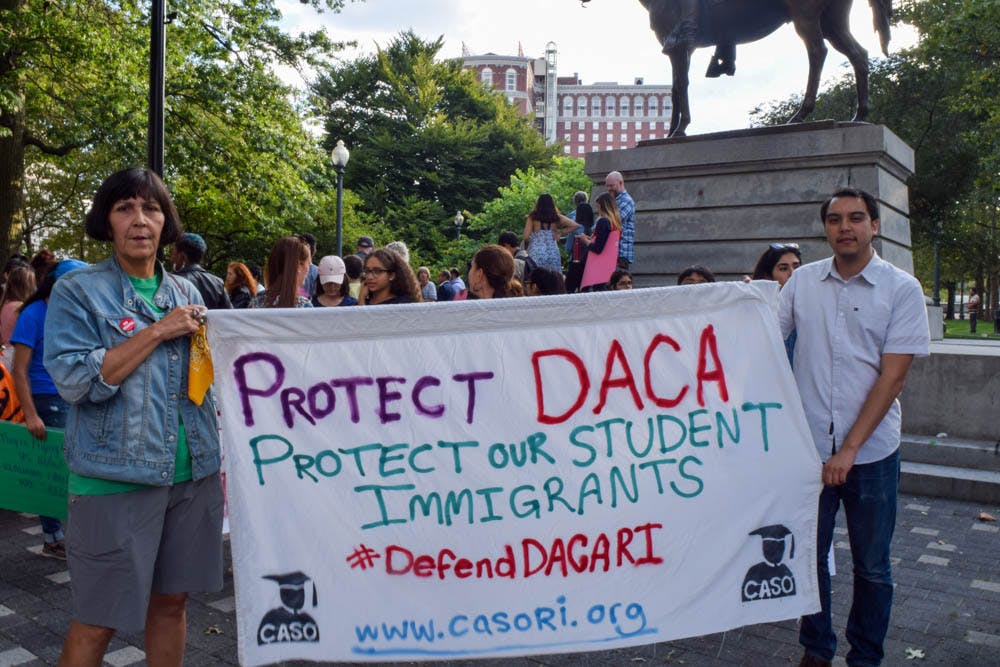 PROTECT DACA
PROTECT OUR STUDENT
IMMIGRANTS
#DefendDACARI
CASO
CASO
www.casori.org